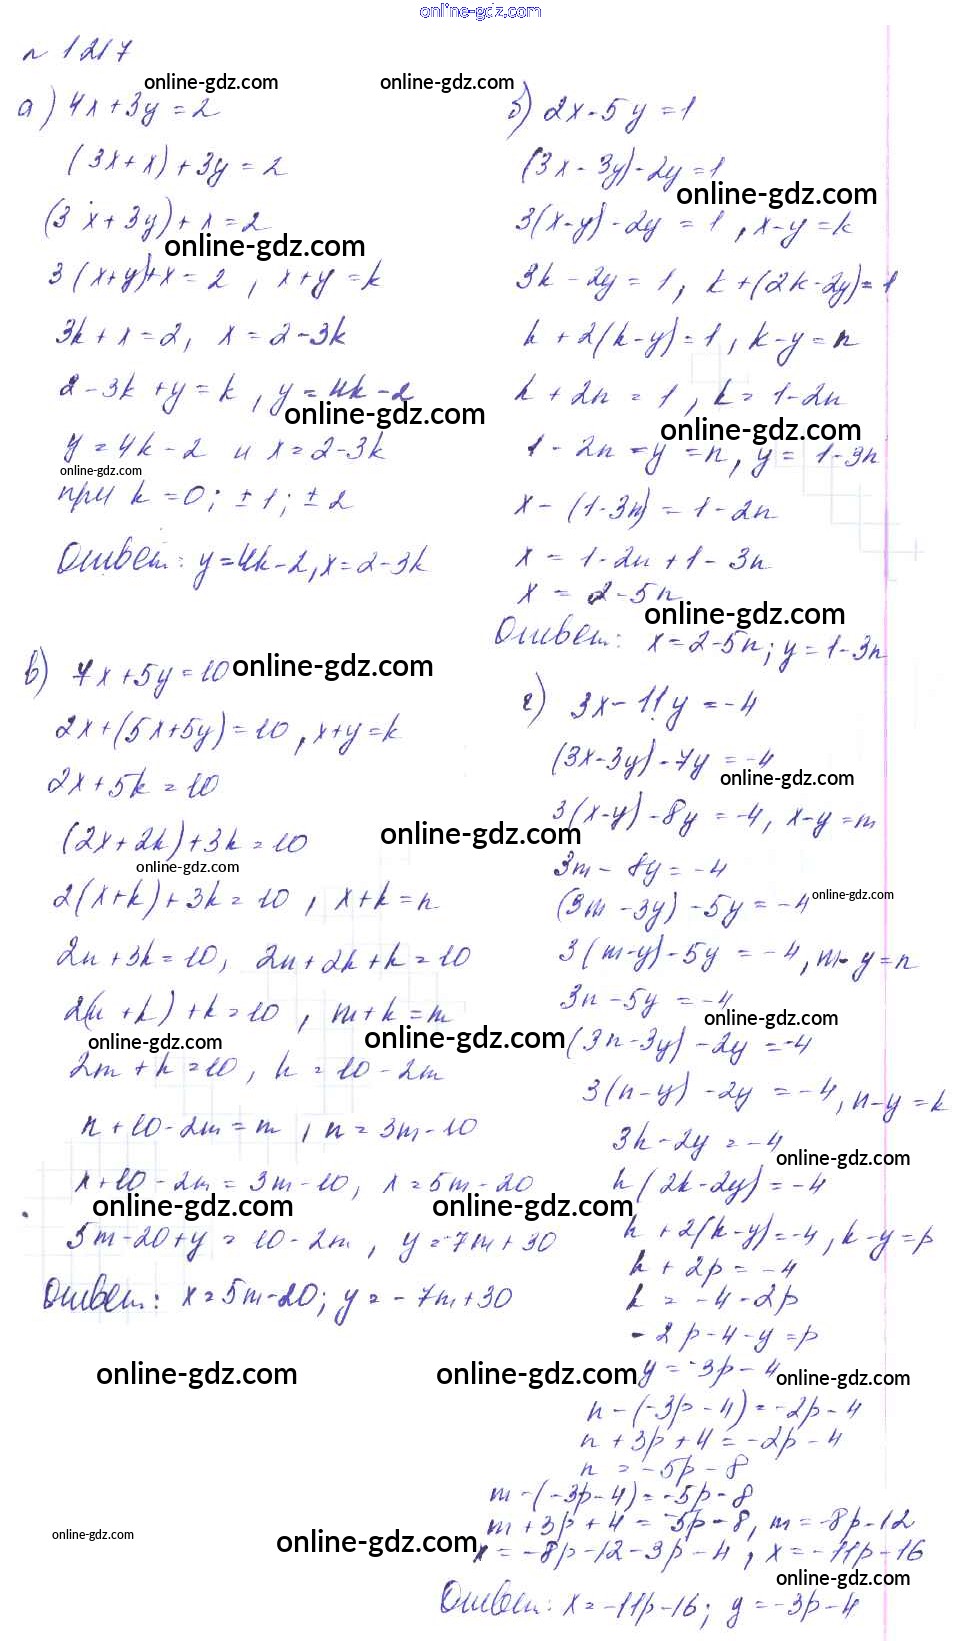 online-gdz.com
n 1217
online-gdz.com
online-gdz.com
а) 4x+3y=2
(3x+x)+3y=2
(3x+3y)+x=2
online-gdz.com
3(x+y)+x=2, x+y=k
3k+x=2, x=2-3k
2-3k+y=k, y=4k-2
online-gdz.com
y=4k-2 и x=2-3k
online-gdz.com
при k=0; ±1; ±2
Ответ: y=4k-2, x=2-3k
б) 2x-5y=1
(3x-3y)-2y=1
online-gdz.com
3(x-y)-2y=1, x-y=k
3k-2y=1, k+(2k-2y)=1
k+2(k-y)=1, k-y=n
k+2n=1, k=1-2n
online-gdz.com
1-2n-y=n, y=1-3n
x-(1-3n)=1-2n
x=1-2n+1-3n
x=2-5n
online-gdz.com
Ответ: x=2-5n; y=1-3n
в) 7x+5y=10
online-gdz.com
2x+(5x+5y)=10, x+y=k
2x+5k=10
(2x+2k)+3k=10
online-gdz.com
online-gdz.com
2(x+k)+3k=10, x+k=n
2n+3k=10, 2n+2k+k=10
2(n+k)+k=10, n+k=m
online-gdz.com
online-gdz.com
2m+k=10, k=10-2m
n+10-2m=m, n=3m-10
x+10-2m=3m-10, x=5m-20
online-gdz.com
online-gdz.com
5m-20+y=10-2m, y=-7m+30
Ответ: x=5m-20; y=-7m+30
online-gdz.com
online-gdz.com
г) 3x-11y=-4
(3x-3y)-7y=-4
online-gdz.com
3(x-y)-8y=-4, x-y=m
3m-8y=-4
online-gdz.com
(3m-3y)-5y=-4
3(m-y)-5y=-4, m-y=n
3n-5y=-4
online-gdz.com
(3n-3y)-2y=-4
3(n-y)-2y=-4, n-y=k
3k-2y=-4
online-gdz.com
k(2k-2y)=-4
k+2(k-y)=-4, k-y=p
k+2p=-4
k=-4-2p
-2p-4-y=p
y=-3p-4
online-gdz.com
n-(-3p-4)=-2p-4
n+3p+4=-2p-4
n=-5p-8
m-(-3p-4)=-5p-8
m+3p+4=-5p-8, m=-8p-12
online-gdz.com
online-gdz.com
x=-8p-12-3p-4, x=-11p-16
online-gdz.com
Ответ: x=-11p-16; y=-3p-4